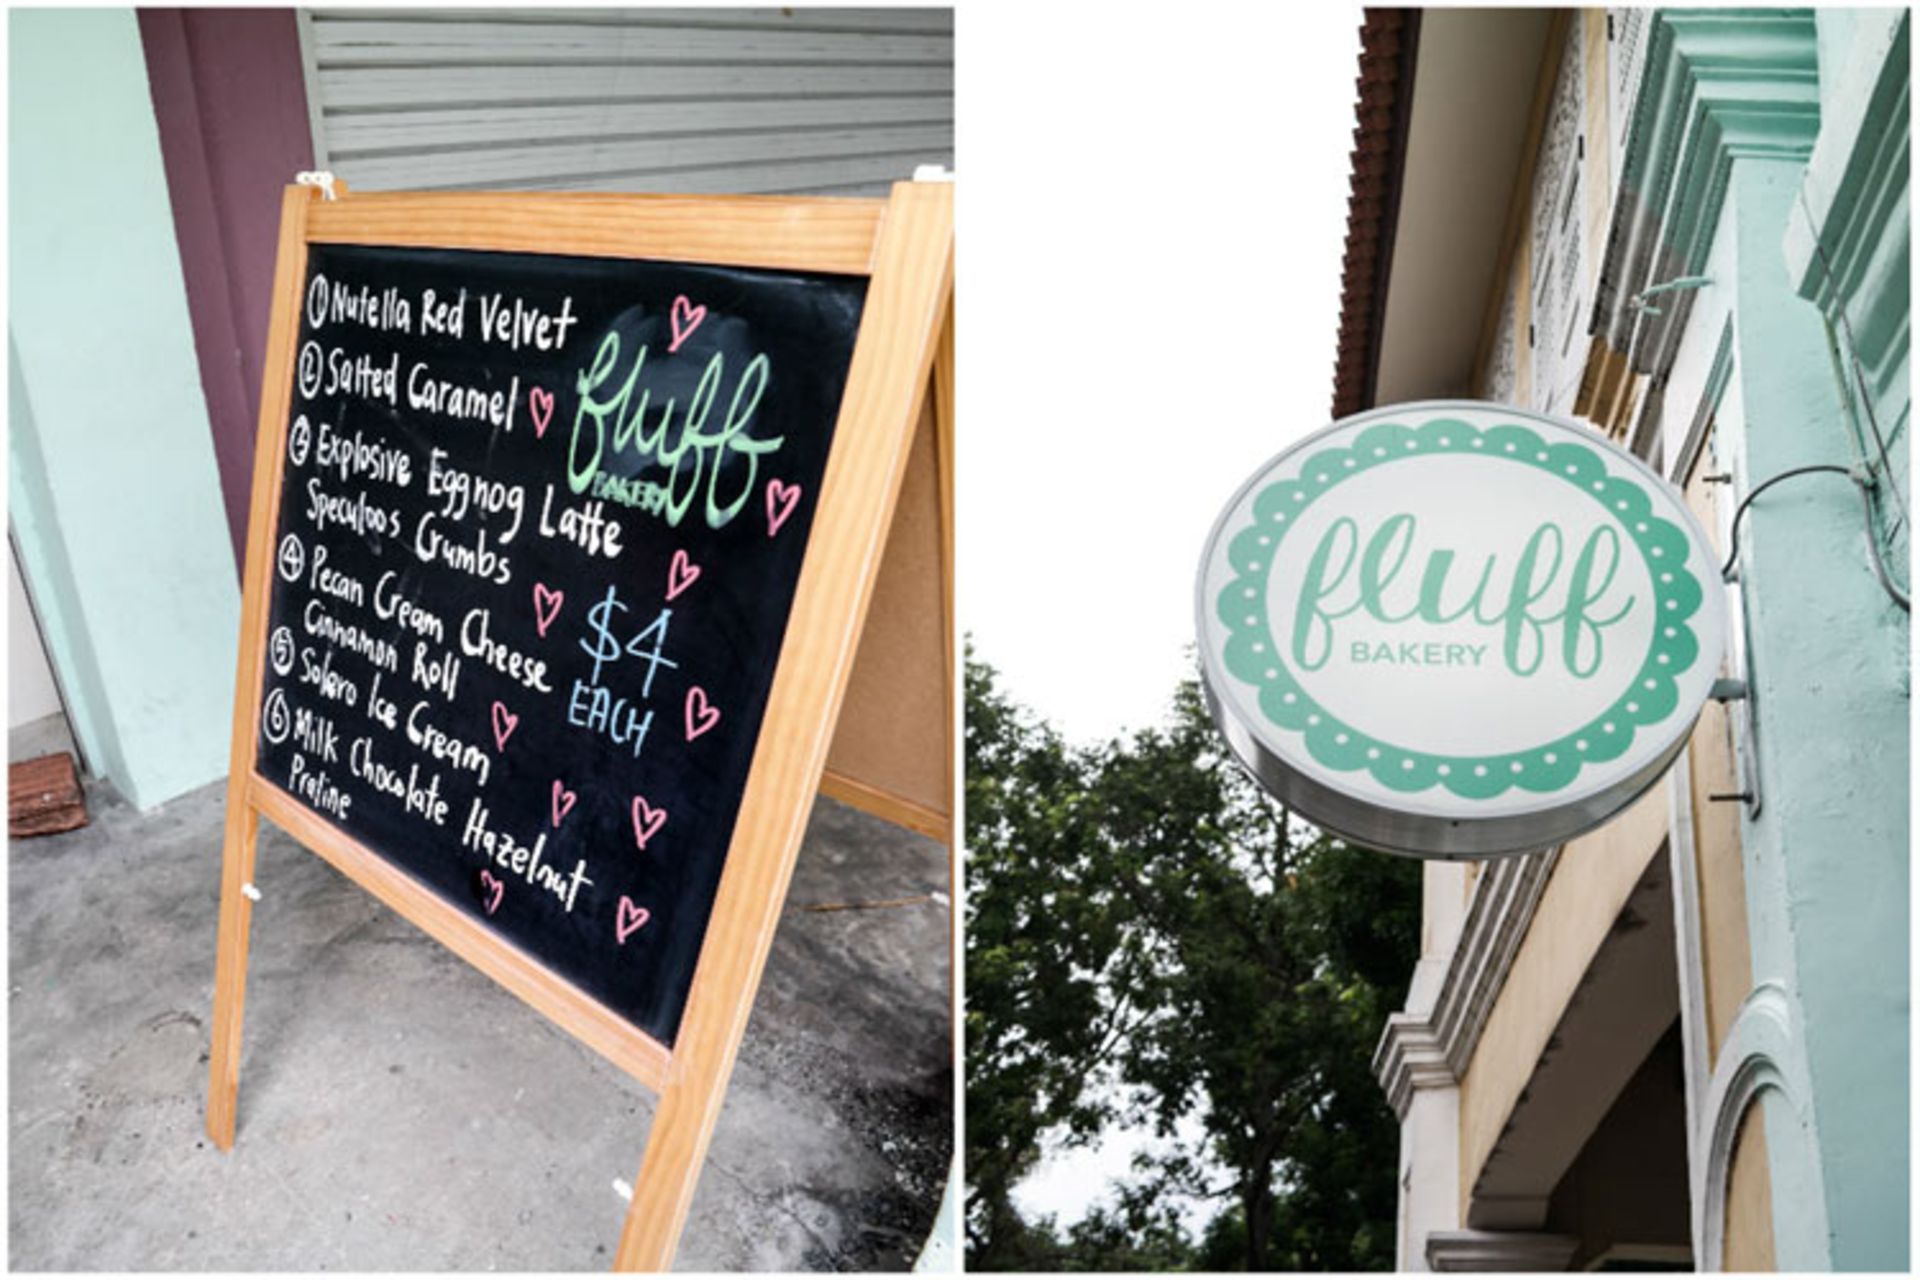 ① Nutella Red Velvet
② Salted Caramel
③ Explosive Eggnog Latte
Speculoos Crumbs
④ Pecan Cream Cheese
Cinnamon Roll
⑤ Solero Ice Cream
⑥ Milk Chocolate Hazelnut
Praline
fluff
BAKERY
$4
EACH
fluff
BAKERY